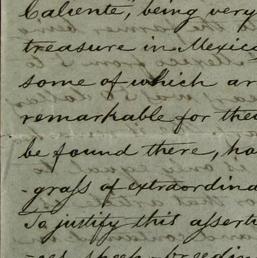 Caliente", being very
treasure in Mexico
some of which ar
remarkable for the
be found there, ha
-grass of extraordina
To justify this assert
sheep-breedin